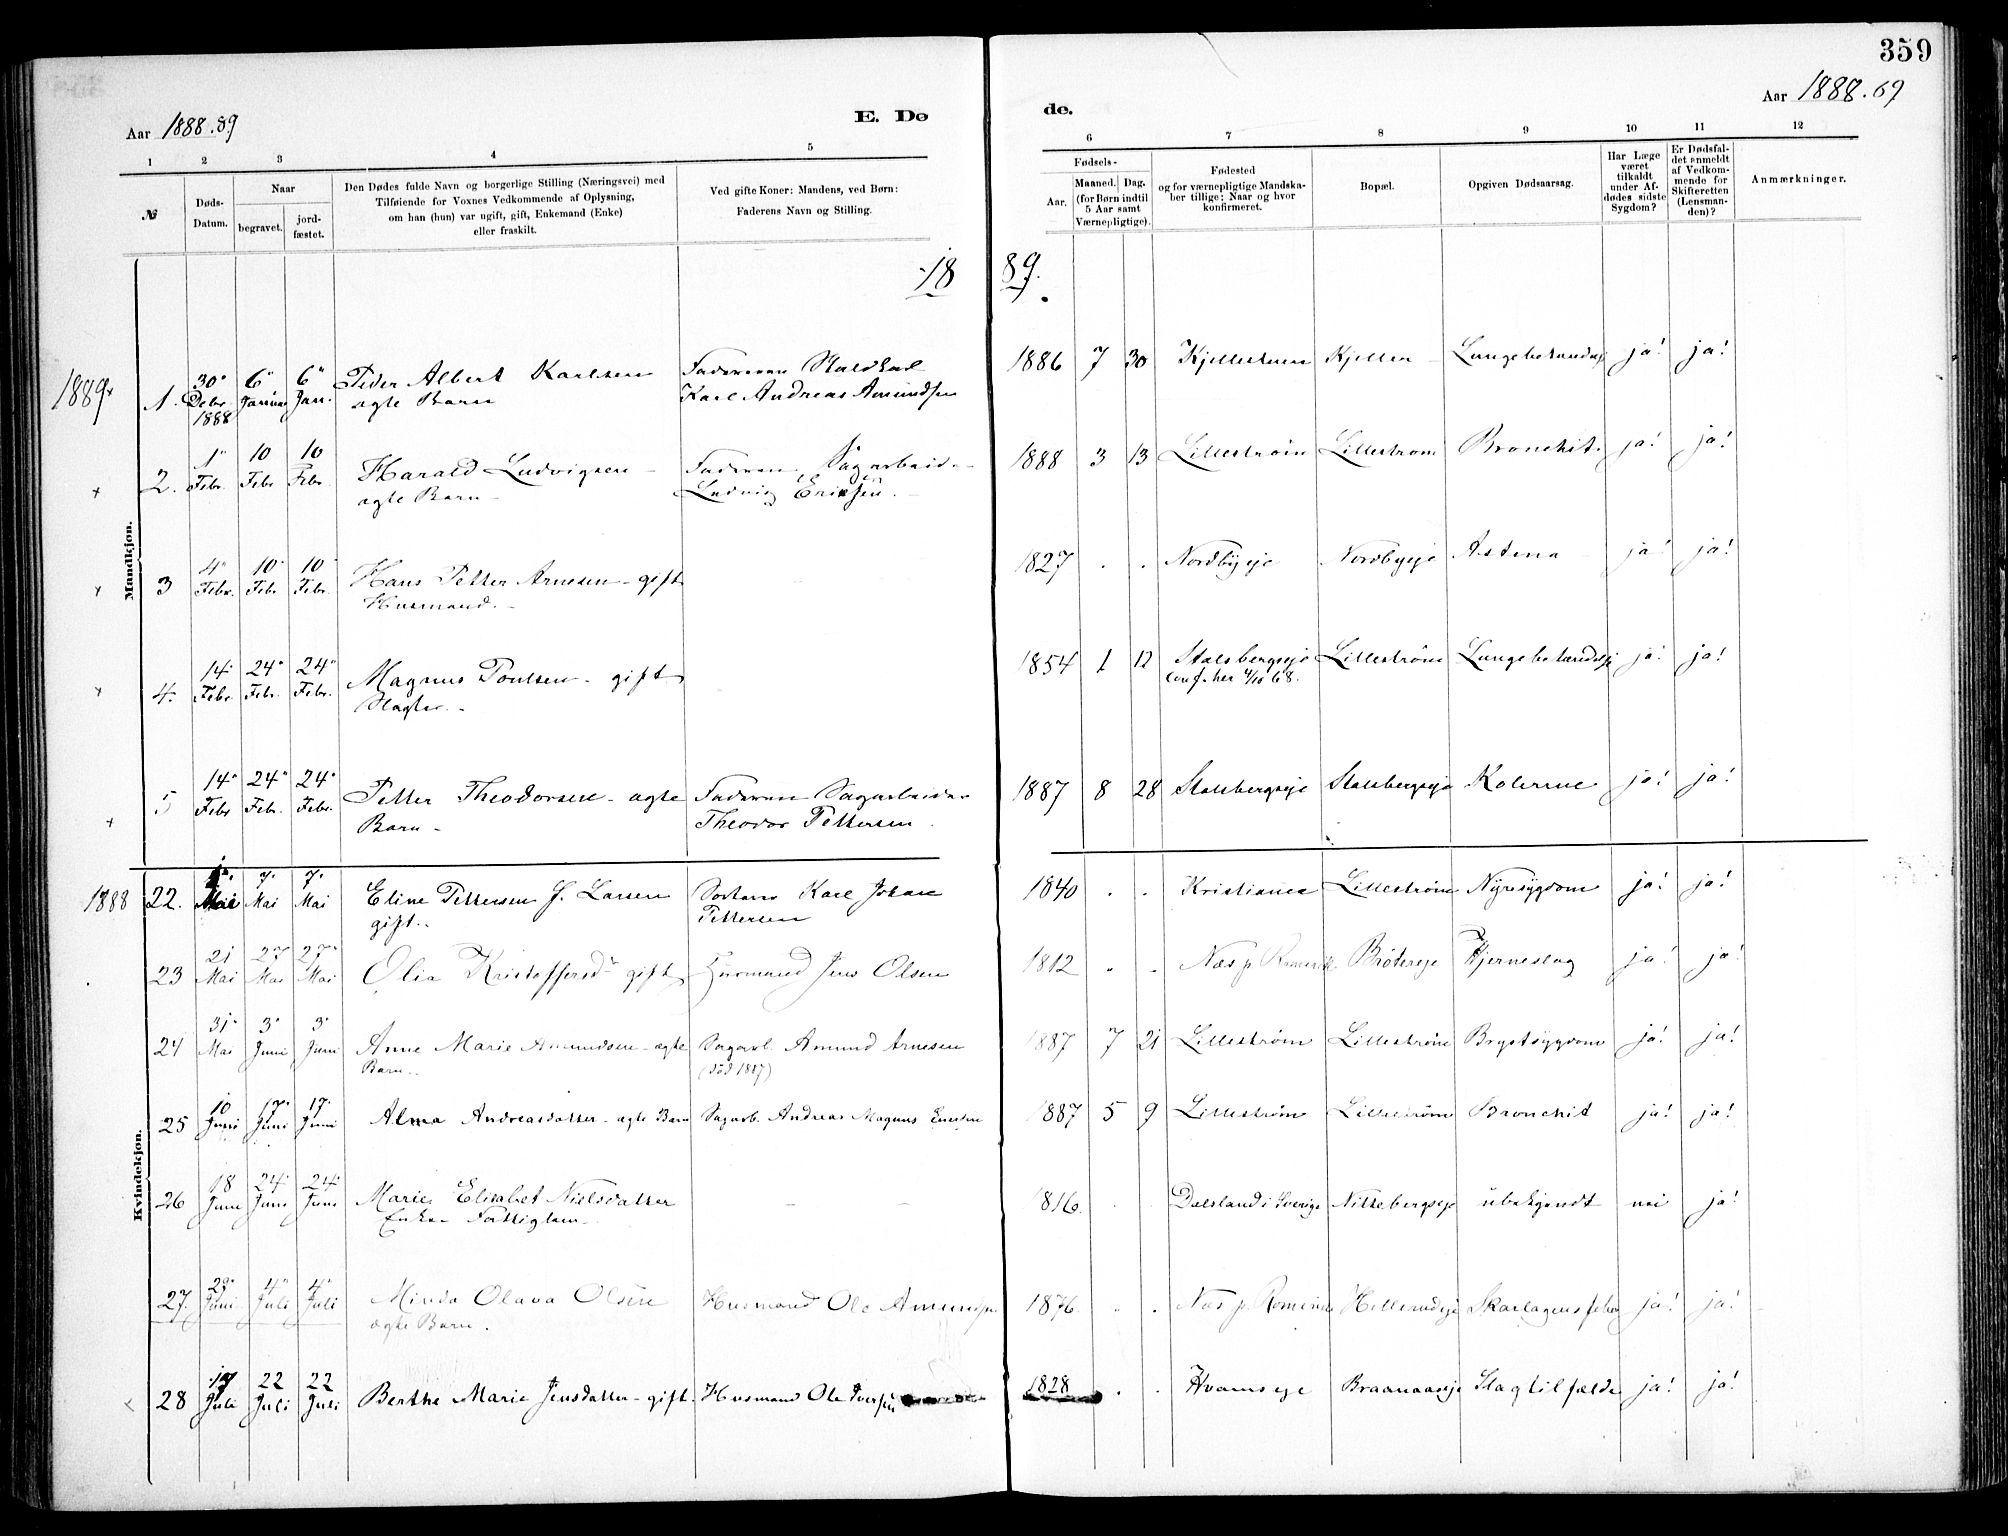 359
Aar 1888.89
E. Dø
de.
Aar 1888.89
1 2 3 4 5 6 7 8 9 10 11 12
№
Døds-
Datum.
Naar
begravet.
jord-
fæstet.
Den Dødes fulde Navn og borgerlige Stilling (Næringsvei) med
Tilføiende for Voxnes Vedkommende af Oplysning,
om han (hun) var ugift, gift, Enkemand (Enke)
eller fraskilt.
Ved gifte Koner: Mandens, ved Børn:
Faderens Navn og Stilling.
Fødsels-
Aar.
Maaned. Dag.
(for Børn indtil
5 Aar samt
Værnepligtige).
Fødested
og for værnepligtige Mandska-
ber tillige: Naar og hvor
konfirmeret.
Bopæl.
Opgiven Dødsaarsag.
Har Læge
været
tilkaldt
under Af-
dødes sidste
Sygdom?
Er Dødsfal-
det anmeldt
af Vedkom-
mende for
Skifteretten
(Lensman-
den)?
Anmærkninger.
18 89.
Mandkjøn.
1889
1. 30 Debr 1888 6 Januar 6 Jan. Peder Albert Karlsen Faderen Staldkarl 1886 7 30 Kjeller Lungebetændelse ja! ja!
ægte Barn Karl Andreas Amundsen
2. 1 Febr. 10 Febr 10 Febr Harald Ludvigsen Faderen, Sagarbeid. 1888 3 13 Lillestrøm Lillestrøm Bronchit. ja! ja!
ægte Barn Ludvig Eriksen
3 4 Febr. 10 Febr 10 Febr. Hans Petter Arnesen - gift 1827 . . Nordbyeje Nordbyeje Astma ja! ja!
Husmand.
4. 14 Febr 24 Febr. 24 Febr. Magnus Poulsen - gift 1854 1 12 Stalsbergeje Lillestrøm Lungebetændelse ja! ja!
Slagter. conf. her 4/10 68.
5 14 Febr 24 Febr. 24 Febr. Petter Theodorsen - ægte Faderen Sagarbeider 1887 8 28 Stalsbergeje Stalsbergeje Kolerine ja! ja!
Barn - Theodor Pettersen
Kvindekjøn.
1888
22. Mai 7 Mai 7 Mai Eline Pettersen f. Larsen Karl Johan 1840 . . Kristiania Lillestrøm Nyresygdom ja! ja!
gift. Pettersen
23 21 Mai 27 Mai 27 Mai Olia Kristoffersd. gift Husmand Jens Olsen 1812 . . Næs p. Romerik Brøtereje Hjerneslag ja! ja!
24 31 Mai 3 Juni 3 Juni Anne Marie Amundsen - ægte Sagarb. Amund Arnesen 1887 7 21 Lillestrøm Lillestrøm Brystsygdom ja! ja!
Barn. (død 1887)
25 10 Juni 17 Juni 17 Juni Alma Andreasdatter - ægte Barn Sagarb. Andreas Magnus 1887 5 9 Lillestrøm Lillestrøm Bronchit ja! ja!
26 18 Juni 24 Juni 24 Juni Marie Elisabet Nielsdatter 1816. Dalsland i Sverige Nittebergseje ubekjendt nei ja!
Enke - Fattiglem
27. Juni 4 Juli 4 Juli Minda Olava Olsen Husmand Ole Amundsen 1876 . . Næs p. Romerik Skarlagensfeber ja! ja!
ægte Barn.
28 Juli 22 Juli 22 Juli Berthe Marie Jensdatter - gift. Husmand Ole Iversen 1828 . . Hvamseje Braanaaseje Slagtilfælde ja! ja!